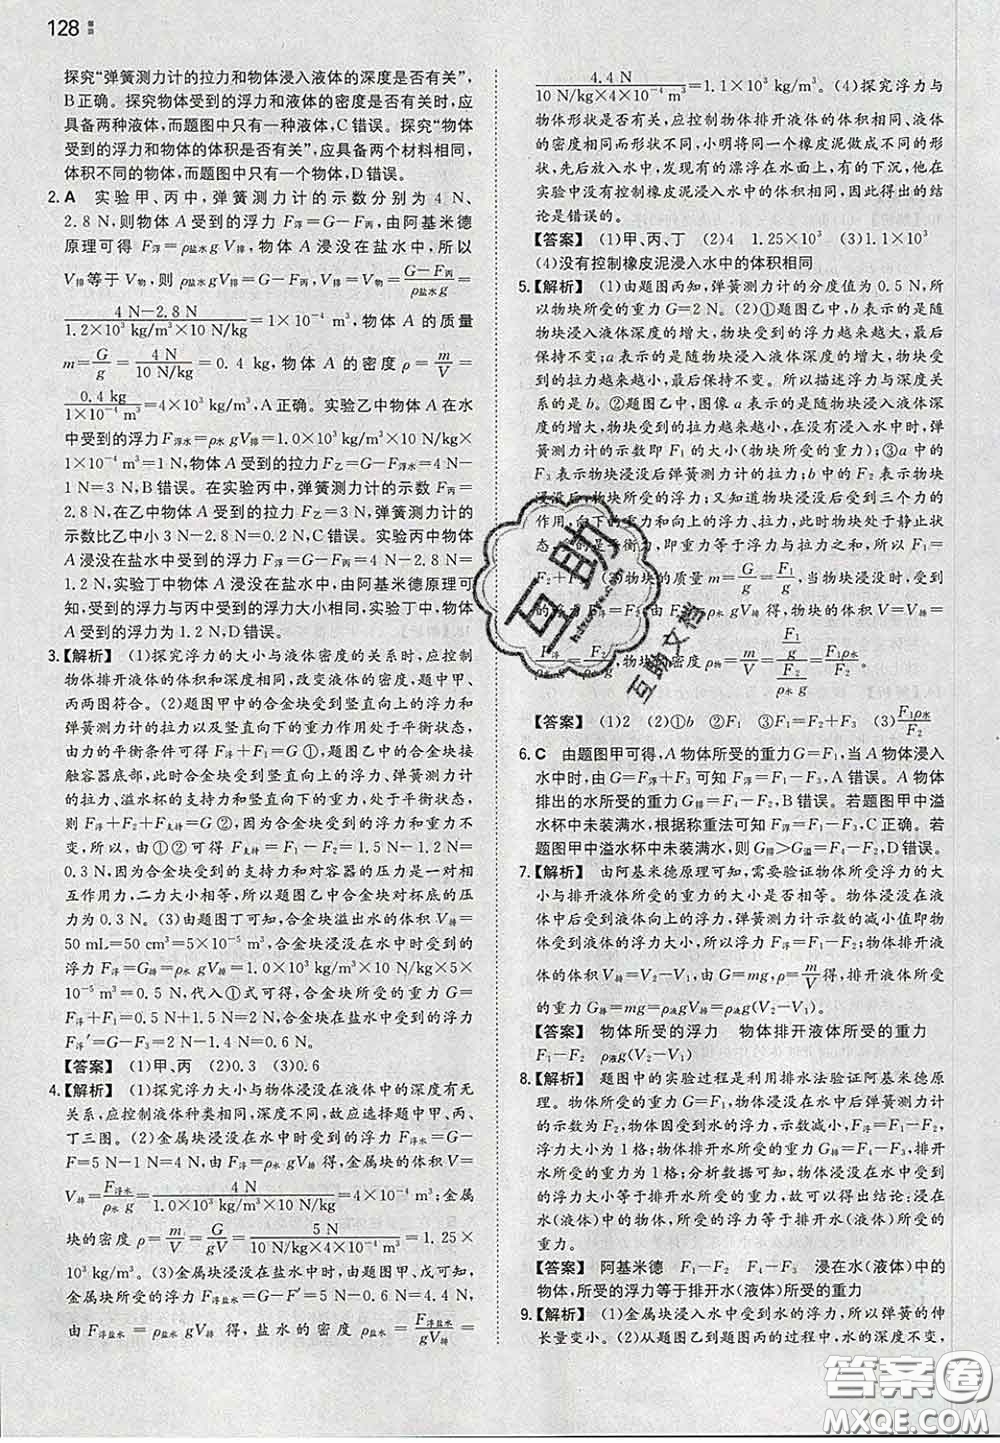 128
探究“弹簧测力计的拉力和物体浸入液体的深度是否有关”,
B正确。探究物体受到的浮力和液体的密度是否有关时,应
具备两种液体,而题图中只有一种液体,C错误。探究“物体
受到的浮力和物体的体积是否有关”,应具备两个材料相同、
体积不同的物体,而题图中只有一个物体,D错误。
2. A 实验甲、丙中,弹簧测力计的示数分别为 4 N、
2.8 N,则物体 A 受到的浮力 F浮=G-F丙,由阿基米德
原理可得 F浮=ρ盐水 gV排,物体 A 浸没在盐水中,所以
V排等于 V物,则 ρ盐水 gV排=G-F丙,V排=(G-F丙)/(ρ盐水g)=
(4 N-2.8 N)/(1.2×10³ kg/m³×10 N/kg)=1×10⁻⁴ m³,物体 A 的质量
m=G/g=4 N/(10 N/kg)=0.4 kg,物体 A 的密度 ρ=m/V=
0.4 kg/(1×10⁻⁴ m³)=4×10³ kg/m³,A正确。实验乙中物体 A 在水
中受到的浮力 F浮水=ρ水 gV排=1.0×10³ kg/m³×10 N/kg×
1×10⁻⁴ m³=1 N,此时弹簧测力计的示数 F乙=G-F浮水=4 N-1 N
=3 N,B错误。在实验丙中,弹簧测力计的示数 F丙=
2.8 N,在乙中物体受到的拉力为 3 N,则实验丙中弹簧测力计的
示数比乙中小 3 N-2.8 N=0.2 N,C错误。实验丙中物体
A 浸没在盐水中受到的浮力 F浮=G-F丙=4 N-2.8 N=
1.2 N,实验丁中物体 A 浸没在盐水中,由阿基米德原理可
知,受到的浮力与丙中受到的浮力大小相同,实验丁中物体
A 受到的浮力为 1.2 N,D错误。
3.【解析】 (1)探究浮力的大小与液体密度的关系时,应控制
物体排开液体的体积和深度相同,改变液体的密度,题中甲、
丙两图符合。(2)题图甲中的合金块受到竖直向上的浮力和
弹簧测力计的拉力以及竖直向下的重力作用处于平衡状态,
由力的平衡条件可得 F浮+F1=G ①,题图乙中的合金块接
触容器底部,此时合金块受到竖直向上的浮力、弹簧测力计
的拉力、溢水杯的支持力和竖直向下的重力,处于平衡状态,
则 F浮+F2+F支持=G ②,因为合金块受到的浮力和重力不
变,所以,由①②可得 F支持=F1-F2=1.5 N-1.2 N=
0.3 N,因合金块受到的支持力和对容器的压力是一对相
互作用力,二力大小相等,所以题图乙中合金块对杯底的压
力为 0.3 N。(3)由题图丁可知,合金块溢出水的体积 V排=
50 mL=50 cm³=5×10⁻⁵ m³,合金块浸没在水中时受到的
浮力 F浮=G排=ρ水 gV排=1.0×10³ kg/m³×10 N/kg×5×
10⁻⁵ m³=0.5 N,代入①式可得,合金块所受的重力 G=
F浮+F1=0.5 N+1.5 N=2 N,合金块在盐水中受到的浮力
F浮′=G-F3=2 N-1.4 N=0.6 N。
【答案】 (1)甲、丙 (2)0.3 (3)0.6
4.【解析】 (1)探究浮力大小与物体浸没在液体中的深度有无
关系,应控制液体种类相同,深度不同,故应选择题中甲、丙、
丁三图。(2)金属块浸没在水中时受到的浮力 F浮水=G-
F=5 N-1 N=4 N,由 F浮水=ρ水 gV排得,金属块的体积 V=
V排=F浮水/(ρ水 g)=4 N/(1.0×10³ kg/m³×10 N/kg)=4×10⁻⁴ m³;金属
块的密度 ρ=m/V=G/(gV)=5 N/(10 N/kg×4×10⁻⁴ m³)=1.25×
10³ kg/m³。(3)金属块浸没在盐水中时,由题图甲、戊可知,
受到的浮力 F浮盐水=G-F′=5 N-0.6 N=4.4 N,
由 F浮盐水=ρ盐水 gV排 得,盐水的密度 ρ盐水=F浮盐水/(gV排)=
4.4 N/(10 N/kg×4×10⁻⁴ m³)=1.1×10³ kg/m³。(4)探究浮力与
物体形状是否有关,应控制物体排开液体的体积相同、液体
的密度相同而形状不同,小明将两块相同的橡皮泥做成不同的形状,
先后放入水中,发现有的漂浮在水面上,有的下沉,他在
实验中没有控制橡皮泥浸入水中的体积相同,因此得出的结
论是错误的。
【答案】 (1)甲、丙、丁 (2)4 1.25×10³ (3)1.1×10³
(4)没有控制橡皮泥浸入水中的体积相同
5.【解析】 (1)由题图丙知,弹簧测力计的分度值为 0.5 N,所
以物块所受的重力 G=2 N。(2)①题图乙中,b 表示的是随
物块浸入液体深度的增大,物块受到的浮力越来越大,最后
保持不变;a 表示的是随物块浸入液体深度的增大,物块受
到的拉力越来越小,最后保持不变。所以描述浮力与深度关
系的是 b。②题图乙中,图像 a 表示的是随物块浸入液体深
度的增大,物块受到的拉力越来越小,在物块没有浸入水中时,弹簧
测力计的示数即 F1 的大小(物块所受的重力);③a 中的
F3 表示物块浸没后弹簧测力计的拉力;b 中的 F2 表示物块
浸没后,物块所受的浮力;又知道物块浸没后受到三个力的
作用,向下的重力和向上的浮力、拉力,此时物块处于静止状
态,受到的是平衡力,即重力等于浮力与拉力之和,所以 F1=
F2+F3。(3)物块的质量 m=G/g=F1/g,当物块浸没时,受到
的浮力 F浮=F2,物块的体积 V=V排=
F浮/(ρ水 g)=F2/(ρ水 g),物块的密度 ρ物=m/V=(F1/g)/(F2/(ρ水 g))=F1ρ水/F2。
【答案】 (1)2 (2)①b ②F1 ③F1=F2+F3 (3)F1ρ水/F2
6. C 由题图甲可得,A 物体所受的重力 G=F1,当 A 物体浸入
水中时,由 G=F浮+F3 可知 F浮=F1-F3,A错误。A 物体
排出的水所受的重力 G排=F4-F2,B错误。若题图甲中溢
水杯中未装满水,根据称重法可知 F浮=F1-F3,C正确。若
题图甲中溢水杯中未装满水,则 G排>G溢=F4-F2,D错误。
7.【解析】 由阿基米德原理可知,需要验证物体所受浮力的大
小与排开液体所受的重力的大小是否相等。物体浸没在液
体中后受到液体向上的浮力,弹簧测力计示数的减小值即物
体受到的浮力大小,所以浮力 F浮=F1-F2。物体浸没在液
体的体积 V排=V2-V1。由 G=mg,ρ=m/V得,排开液体所受
的重力 G排=m液g=ρ液gV排=ρ液g(V2-V1)。
【答案】 物体所受的浮力 物体排开液体所受的重力
F1-F2 ρ液g(V2-V1)
8.【解析】 题图中的实验过程是利用排水法验证阿基米德原
理。物体所受的重力 G=F1,物体浸没在水中后弹簧测力计
的示数为 F2,物体因受到水的浮力,示数减小,F浮=F1-F2,
浮力大小为 1 格;物体排开水的体积所受的重力,排开水所
受的重力为 1 格;分析数据可知,物体浸没在水中受到的浮
力大小等于排开水所受的重力,故可以得出结论:浸在
水(液体)中的物体,所受的浮力等于排开水(液体)所受的
重力。
【答案】 阿基米德 F1-F2 F1-F2 浸在水(液体)中的
物体,所受的浮力等于排开水(液体)所受的重力
9.【解析】 (1)金属块浸入水中受到水的浮力,所以弹簧的伸
长量变小。(2)从题图乙到题图丙的过程中,水的深度不变,
互助
互助文档
答案圈
MXQE.COM